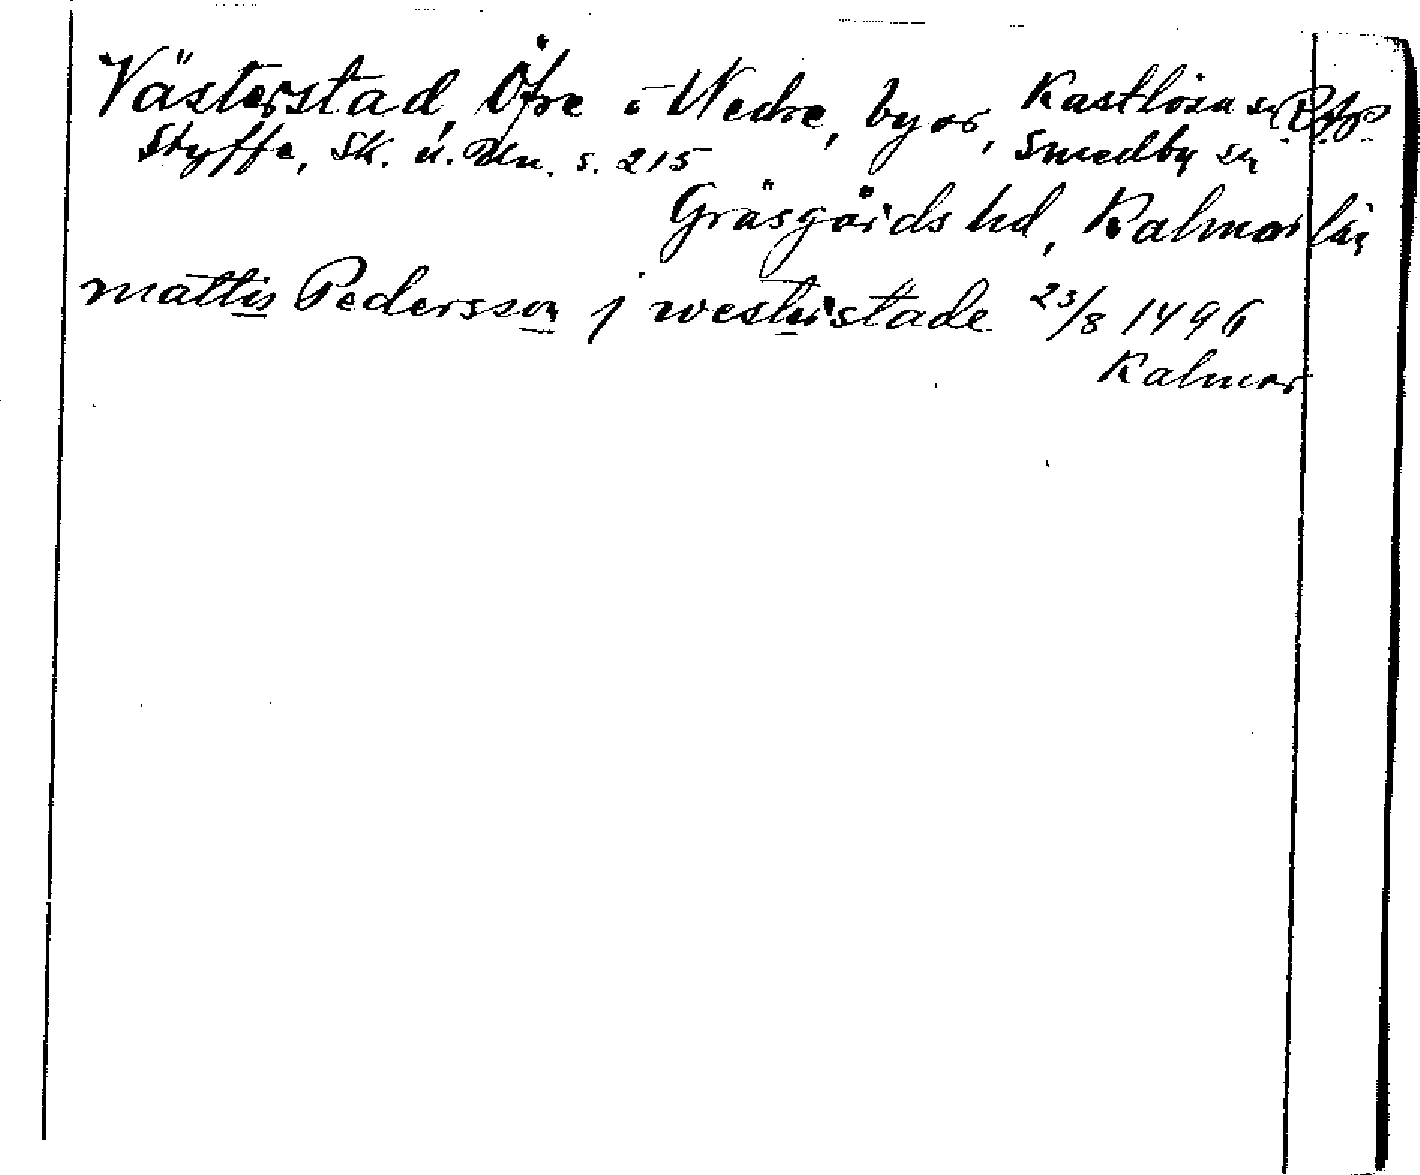 Västerstad, Öfre o Nedre, byar, Kastlösa sn
Styffe, Sk. u. Un. s. 215 Smedby sn
Gräsgårds hd, Kalmar län
mattis Pedersson j westerstade 23/8 1496
Kalmar